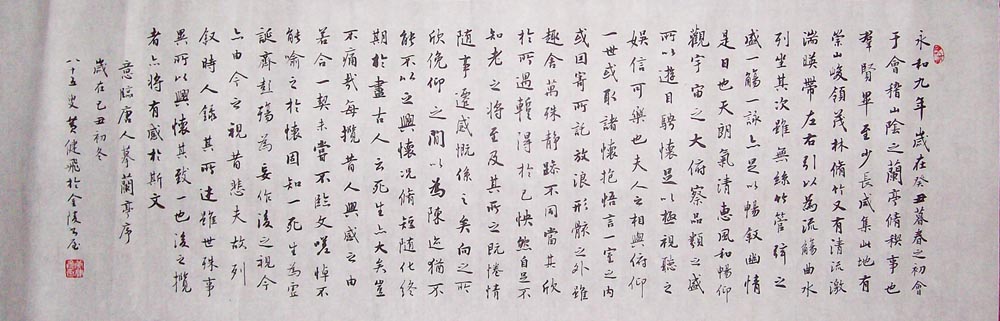 永和九年歲在癸丑暮春之初會
于會稽山陰之蘭亭脩稧事也
羣賢畢至少長咸集此地有
崇山峻領茂林脩竹又有清流激
湍暎帶左右引以為流觴曲水
列坐其次雖無絲竹管弦之
盛一觴一詠亦足以暢叙幽情
是日也天朗氣清惠風和暢仰
觀宇宙之大俯察品類之盛
所以遊目騁懷足以極視聽之
娛信可樂也夫人之相與俯仰
一世或取諸懷抱悟言一室之內
或因寄所託放浪形骸之外雖
趣舍萬殊靜躁不同當其欣
於所遇暫得於己怏然自足不
知老之將至及其所之既惓情
隨事遷感慨係之矣向之所
欣俛仰之間以為陳迹猶不
能不以之興懷况脩短隨化終
期於盡古人云死生亦大矣豈
不痛哉每攬昔人興感之由
若合一契未嘗不臨文嗟悼不
能喻之於懷固知一死生為虛
誕齊彭殤為妄作後之視今
亦由今之視昔悲夫故列
叙時人錄其所述雖世殊事
異所以興懷其致一也後之攬
者亦將有感於斯文
意臨唐人摹蘭亭序
歲在己丑初冬
八十五叟黄健飛於金陵